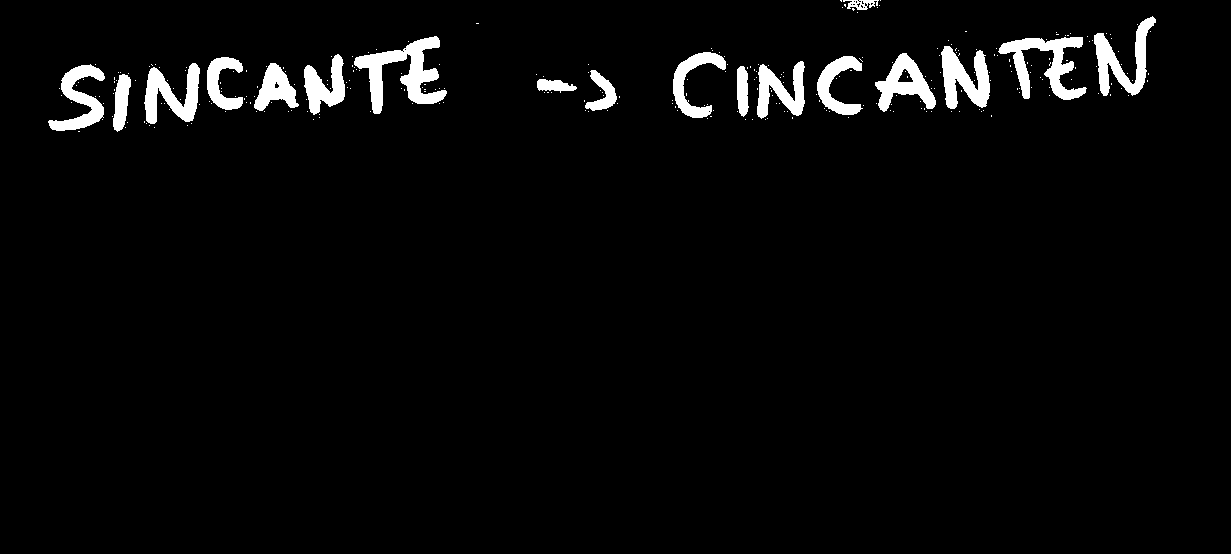 SINCANTE -> CINCANTEN